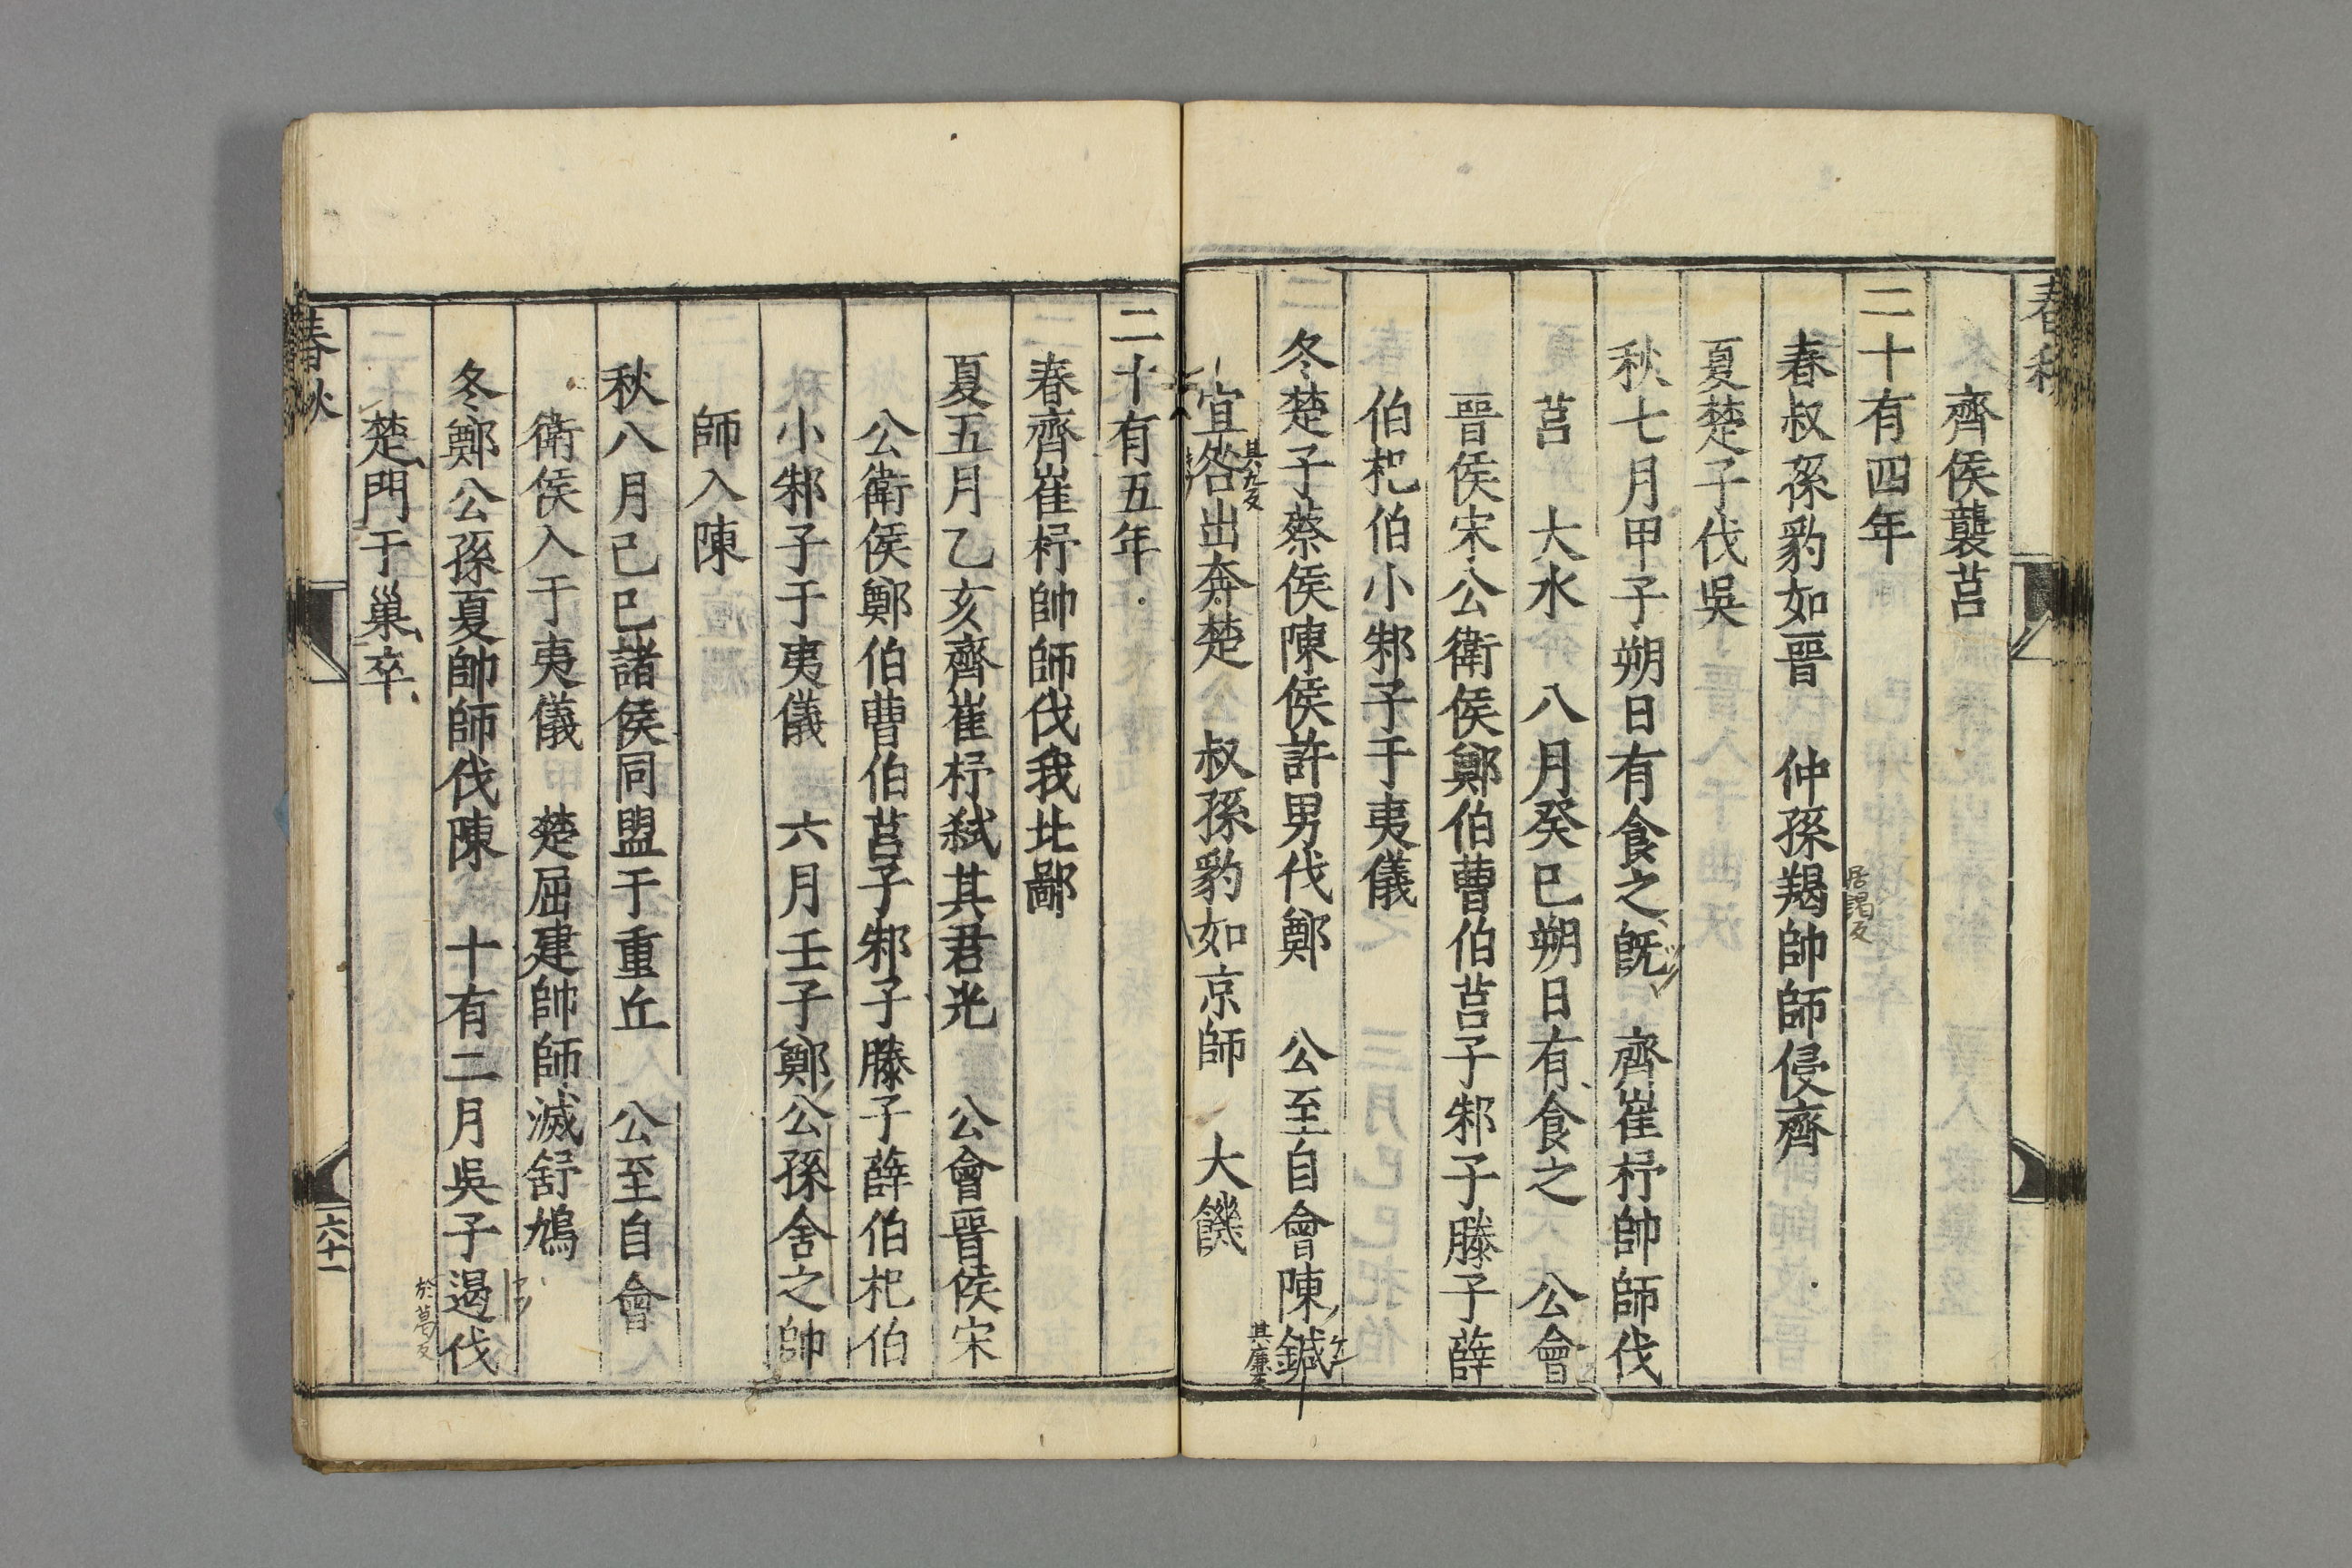 春秋
齊侯襲莒
二十有四年
春叔孫豹如晉 仲孫羯帥師侵齊
居謁反
夏楚子伐吳
秋七月甲子朔日有食之既 齊崔杼帥師伐
莒 大水 八月癸巳朔日有食之 公會
晉侯宋公衛侯鄭伯曹伯莒子邾子滕子薛
伯杞伯小邾子于夷儀
冬楚子蔡侯陳侯許男伐鄭 公至自會陳鍼
其廉反
宜咎出奔楚 叔孫豹如京師 大饑
其九反
二十有五年
春齊崔杼帥師伐我北鄙
夏五月乙亥齊崔杼弒其君光 公會晉侯宋
公衛侯鄭伯曹伯莒子邾子滕子薛伯杞伯
小邾子于夷儀 六月壬子鄭公孫舍之帥
師入陳
秋八月己巳諸侯同盟于重丘 公至自會
衛侯入于夷儀 楚屈建帥師滅舒鳩
冬鄭公孫夏帥師伐陳 十有二月吳子遏伐
於葛反
楚門于巢卒
春秋
六十一